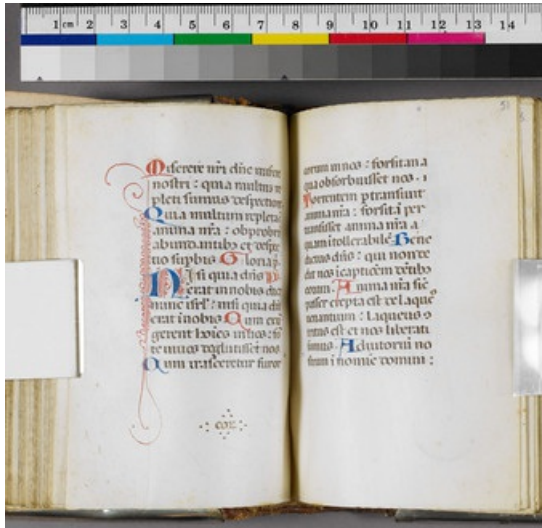 1 cm 2 3 4 5 6 7 8 9 10 11 12 13 14
Miserere nrĩ dñe miserere
nostri : quia multum re
pleti sumus despectione
Quia multum repleta
anima nrã : obprobri
abundantibꝫ et despe
tio supbis Gloria p
Nisi quia dñs
erat in nobis dic
nunc isrl : nisi quia dñ
erat in nobis Qum exu
gerent hoĩes in nos : fo
te vivos deglutisset nos
Qum irasceretur furor
eorum in nos : forsitan a
qua obsorbuisset nos
Torrentem ptransiuit
anima nrã : forsitã per
transisset anima nrã a
quam itollerabilẽ Bene
dictus dñs : qui non de
dit nos icapticẽ dẽtibꝫ
eorum Anima nrã sic
passer erepta est de laque
venantium : Laqueus
tritus est et nos liberati
sumus Adiutorium no
strum i nomie domini :